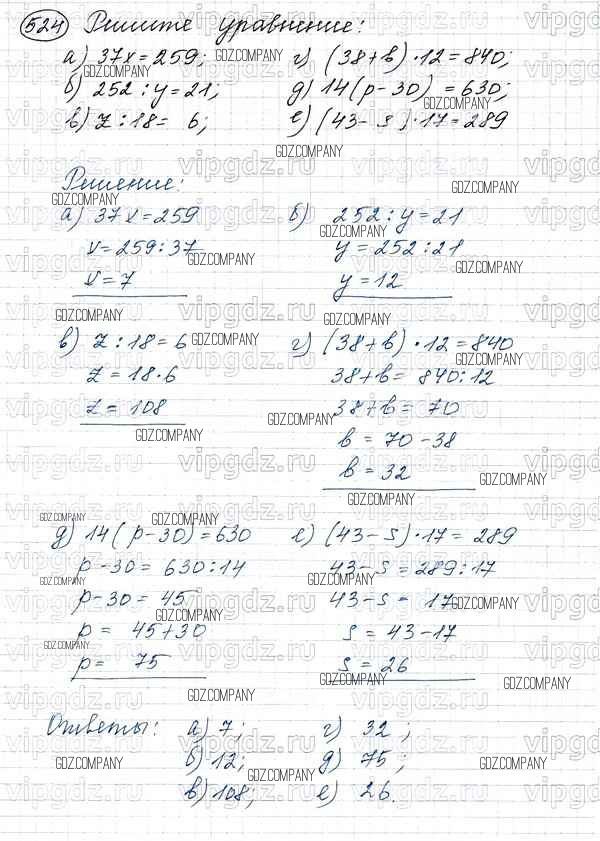 524 Решите уравнение:
а) 37x = 259; г) (38+b)·12=840;
б) 252 : y = 21; д) 14(p-30) = 630;
в) z : 18 = 6; е) (43-s)·17=289
Решение:
а) 37x = 259 б) 252 : y = 21
x = 259 : 37 y = 252 : 21
x = 7 y = 12
в) z : 18 = 6 г) (38+b)·12=840
z = 18·6 38+b = 840:12
z = 108 38+b = 70
b = 70-38
b = 32
д) 14(p-30)=630 е) (43-s)·17= 289
p-30= 630:14 43-s = 289:17
p-30= 45 43-s = 17
p = 45+30 s = 43-17
p = 75 s = 26
Ответы: а) 7; г) 32;
б) 12; д) 75;
в) 108; е) 26.
vipgdz.ru
GDZ.COMPANY